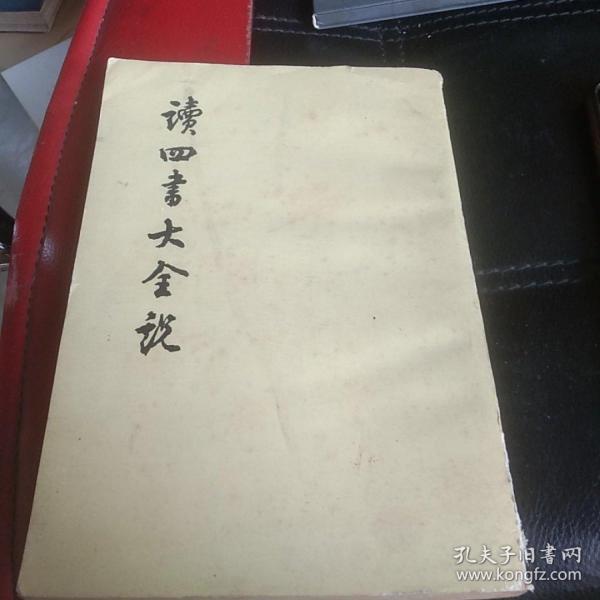 讀四書大全説
孔夫子旧書网
www.kongfz.com